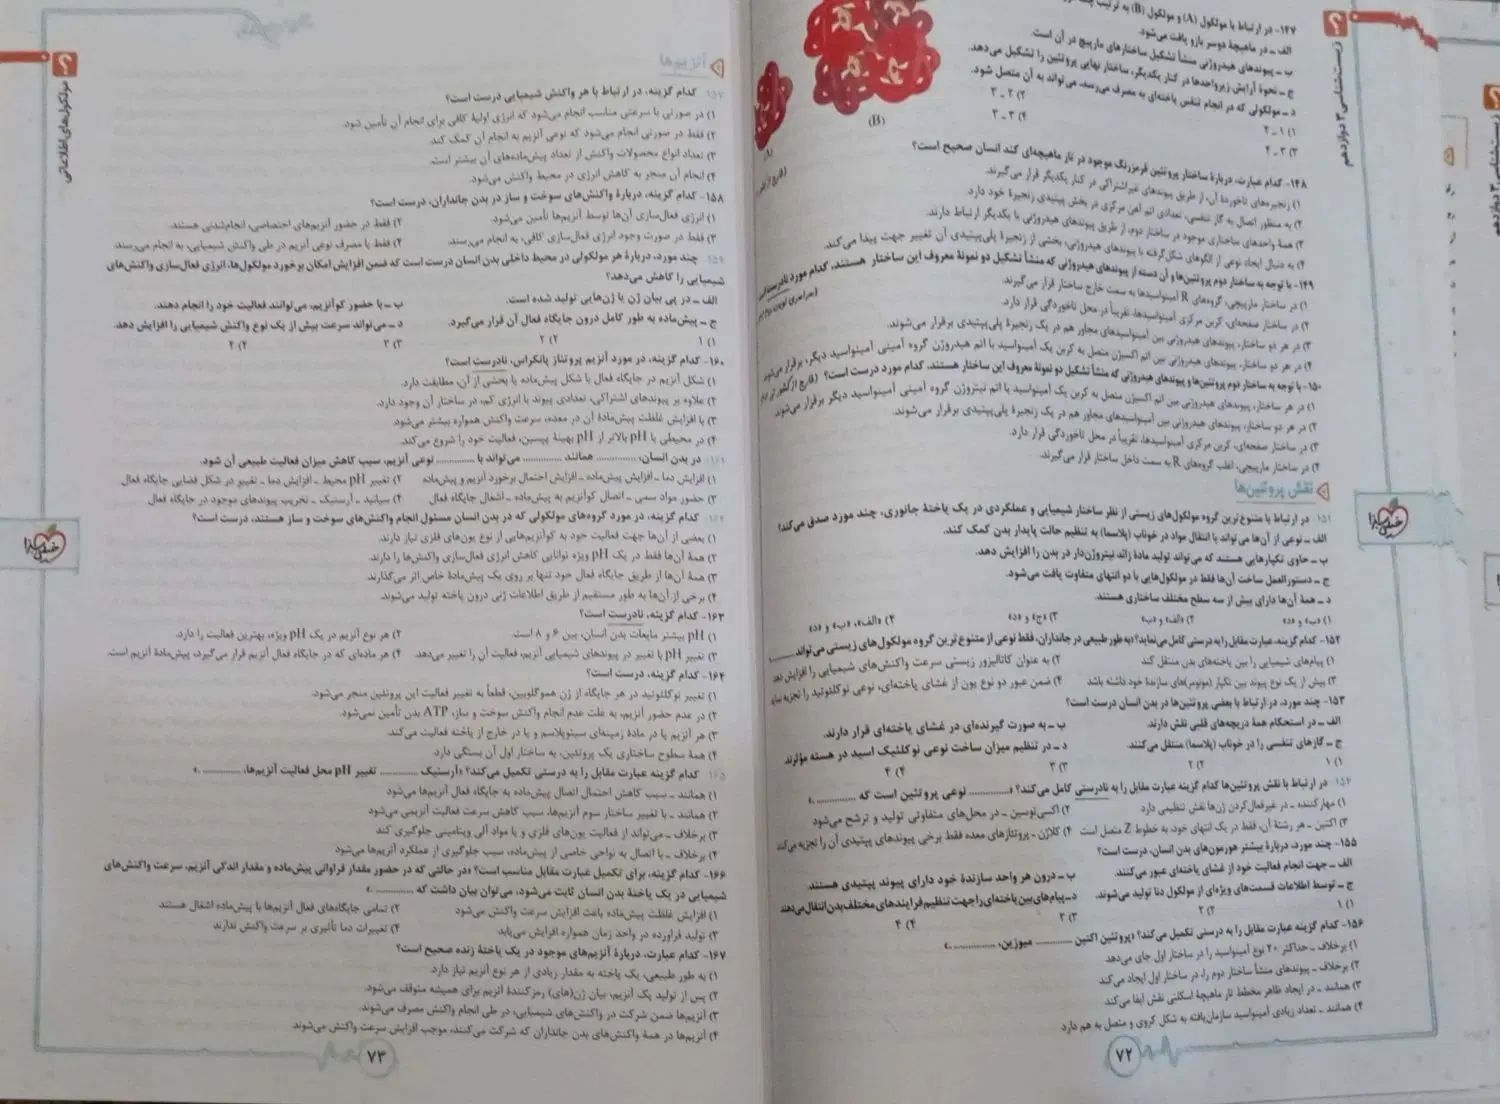 زیست‌شناسی ۳ دوازدهم
۱۴۷- در ارتباط با مولکول (A) و مولکول (B) به ترتیب چند
الف ـ در ماهیچهٔ دوسر بازو یافت می‌شود.
ب ـ پیوندهای هیدروژنی منشأ تشکیل ساختارهای مارپیچ در آن است.
ج ـ نحوهٔ آرایش زیرواحدها در کنار یکدیگر، ساختار نهایی پروتئین را تشکیل می‌دهد.
د ـ مولکولی که در انجام تنفس یاخته‌ای به مصرف می‌رسد، می‌تواند به آن متصل شود.
۱) ۱ ـ ۲
۲) ۲ ـ ۳
۳) ۳ ـ ۴
۴) ۳ ـ ۳
(B)
(A)
۱۴۸- کدام عبارت، دربارهٔ ساختار پروتئین قرمزرنگ موجود در تار ماهیچه‌ای کند انسان صحیح است؟
۱) زنجیره‌های تاخوردهٔ آن، از طریق پیوندهای غیراشتراکی در کنار یکدیگر قرار می‌گیرند.
۲) به منظور اتصال به گاز تنفسی، تعدادی اتم آهن مرکزی در بخش پپتیدی زنجیرهٔ خود دارد.
۳) همهٔ واحدهای ساختاری موجود در ساختار دوم، از طریق پیوندهای هیدروژنی با یکدیگر ارتباط دارند.
۴) به دنبال ایجاد نوعی از الگوهای شکل‌گرفته با پیوندهای هیدروژنی، بخشی از زنجیرهٔ پلی‌پپتیدی آن تغییر جهت پیدا می‌کند.
۱۴۹- با توجه به ساختار دوم پروتئین‌ها و آن دسته از پیوندهای هیدروژنی که منشأ تشکیل دو نمونهٔ معروف این ساختار هستند، کدام مورد نادرست است
۱) در ساختار مارپیچی، گروه‌های R آمینواسیدها به سمت خارج ساختار قرار می‌گیرند.
۲) در ساختار صفحه‌ای، کربن مرکزی آمینواسیدها، تقریباً در محل تاخوردگی قرار دارد.
۳) در هر دو ساختار، پیوندهای هیدروژنی بین آمینواسیدهای مجاور هم در یک زنجیرهٔ پلی‌پپتیدی برقرار می‌شوند.
۴) در هر دو ساختار، پیوندهای هیدروژنی بین اتم اکسیژن متصل به کربن یک آمینواسید با اتم هیدروژن گروه آمینی آمینواسید دیگر، برقرار می‌شوند.
۱۵۰- با توجه به ساختار دوم پروتئین‌ها و پیوندهای هیدروژنی که منشأ تشکیل دو نمونهٔ معروف این ساختار هستند، کدام مورد درست است؟
۱) در هر ساختار، پیوندهای هیدروژنی بین اتم اکسیژن متصل به کربن یک آمینواسید با اتم نیتروژن گروه آمینی آمینواسید دیگر برقرار می‌شوند
۲) در هر دو ساختار، پیوندهای هیدروژنی بین آمینواسیدهای مجاور هم در یک زنجیرهٔ پلی‌پپتیدی برقرار می‌شوند.
۳) در ساختار صفحه‌ای، کربن مرکزی آمینواسیدها، تقریباً در محل تاخوردگی قرار دارد.
۴) در ساختار مارپیچی، اغلب گروه‌های R به سمت داخل ساختار قرار می‌گیرند.
نقش پروتئین‌ها
۱۵۱- در ارتباط با متنوع‌ترین گروه مولکول‌های زیستی از نظر ساختار شیمیایی و عملکردی در یک یاختهٔ جانوری، چند مورد صدق می‌کند؟
الف ـ نوعی از آن‌ها می‌تواند با انتقال مواد در خوناب (پلاسما) به تنظیم حالت پایدار بدن کمک کند.
ب ـ حاوی تکپارهایی هستند که می‌تواند تولید مادهٔ زائد نیتروژن‌دار در بدن را افزایش دهد.
ج ـ دستورالعمل ساخت آن‌ها فقط در مولکول‌هایی با دو انتهای متفاوت یافت می‌شود.
د ـ همهٔ آن‌ها دارای بیش از سه سطح مختلف ساختاری هستند.
۱) «ب» و «د»
۲) «الف» و «ب»
۳) «ج» و «د»
۴) «الف»، «ب» و «د»
۱۵۲- کدام گزینه، عبارت مقابل را به‌درستی کامل می‌نماید؟ «به‌طور طبیعی در جانداران، فقط نوعی از متنوع‌ترین گروه مولکول‌های زیستی می‌تواند ............
۱) پیام‌های شیمیایی را بین یاخته‌های بدن منتقل کند
۲) به عنوان کاتالیزور زیستی سرعت واکنش‌های شیمیایی را افزایش دهد
۳) بیش از یک نوع پیوند بین تکپار (مونومر)های سازندهٔ خود داشته باشد
۴) ضمن عبور دو نوع یون از غشای یاخته‌ای، نوعی نوکلئوتید را تجزیه نماید
۱۵۳- چند مورد، در ارتباط با بعضی پروتئین‌ها در بدن انسان درست است؟
الف ـ در استحکام همهٔ دریچه‌های قلبی نقش دارند.
ب ـ به صورت گیرنده‌ای در غشای یاخته‌ای قرار دارند.
ج ـ گازهای تنفسی را در خوناب (پلاسما) منتقل می‌کنند.
د ـ در تنظیم میزان ساخت نوعی نوکلئیک اسید در هسته مؤثرند.
۱) ۱
۲) ۲
۳) ۳
۴) ۴
۱۵۴- در ارتباط با نقش پروتئین‌ها کدام گزینه عبارت مقابل را به نادرستی کامل می‌کند؟ «............ نوعی پروتئین است که ............ .»
۱) مهارکننده ـ در غیرفعال‌کردن ژن‌ها نقش تنظیمی دارد
۲) اکسی‌توسین ـ در محل‌های متفاوتی تولید و ترشح می‌شود
۳) اکتین ـ هر رشتهٔ آن، فقط در یک انتهای خود، به خطوط Z متصل است
۴) کلاژن ـ پروتئازهای معده فقط برخی پیوندهای پپتیدی آن را تجزیه می‌کند
۱۵۵- چند مورد، دربارهٔ بیشتر هورمون‌های بدن انسان، درست است؟
الف ـ جهت انجام فعالیت خود از غشای یاخته‌ای عبور می‌کنند.
ب ـ درون هر واحد سازندهٔ خود دارای پیوند پپتیدی هستند.
ج ـ توسط اطلاعات قسمت‌های ویژه‌ای از مولکول دنا تولید می‌شوند.
د ـ پیام‌های بین یاخته‌ای را جهت تنظیم فرایندهای مختلف بدن انتقال می‌دهند
۱) ۱
۲) ۲
۳) ۳
۴) ۴
۱۵۶- کدام گزینه عبارت مقابل را به درستی تکمیل می‌کند؟ «پروتئین اکتین ............ میوزین، ............ .»
۱) برخلاف ـ حداکثر ۲۰ نوع آمینواسید را در ساختار اول جای می‌دهد
۲) برخلاف ـ پیوندهای منشأ ساختار دوم را، در ساختار اول ایجاد می‌کند
۳) همانند ـ در ایجاد ظاهر مخطط تار ماهیچهٔ اسکلتی نقش ایفا می‌کند
۴) همانند ـ تعداد زیادی آمینواسید سازمان‌یافته به شکل کروی و متصل به هم دارد
۷۲
خیلی سبز
مولکول‌های اطلاعاتی
آنزیم‌ها
۱۵۷- کدام گزینه، در ارتباط با هر واکنش شیمیایی درست است؟
۱) در صورتی با سرعتی مناسب انجام می‌شود که انرژی اولیهٔ کافی برای انجام آن تأمین شود.
۲) فقط در صورتی انجام می‌شود که نوعی آنزیم به انجام آن کمک کند.
۳) تعداد انواع محصولات واکنش از تعداد پیش‌ماده‌های آن بیشتر است.
۴) انجام آن منجر به کاهش انرژی در محیط واکنش می‌شود.
۱۵۸- کدام گزینه، دربارهٔ واکنش‌های سوخت و ساز در بدن جانداران، درست است؟
۱) انرژی فعال‌سازی آن‌ها توسط آنزیم‌ها تأمین می‌شود.
۲) فقط در حضور آنزیم‌های اختصاصی، انجام‌شدنی هستند.
۳) فقط در صورت وجود انرژی فعال‌سازی کافی، به انجام می‌رسند.
۴) فقط با مصرف نوعی آنزیم در طی واکنش شیمیایی، به انجام می‌رسند.
۱۵۹- چند مورد، دربارهٔ هر مولکولی در محیط داخلی بدن انسان درست است که ضمن افزایش امکان برخورد مولکول‌ها، انرژی فعال‌سازی واکنش‌های
شیمیایی را کاهش می‌دهد؟
الف ـ در پی بیان ژن یا ژن‌هایی تولید شده است.
ب ـ با حضور کوآنزیم، می‌توانند فعالیت خود را انجام دهند.
ج ـ پیش‌ماده به طور کامل درون جایگاه فعال آن قرار می‌گیرد.
د ـ می‌تواند سرعت بیش از یک نوع واکنش شیمیایی را افزایش دهد.
۱) ۱
۲) ۲
۳) ۳
۴) ۴
۱۶۰- کدام گزینه، در مورد آنزیم پروتئاز پانکراس، نادرست است؟
۱) شکل آنزیم در جایگاه فعال با شکل پیش‌ماده یا بخشی از آن، مطابقت دارد.
۲) علاوه بر پیوندهای اشتراکی، تعدادی پیوند با انرژی کم، در ساختار آن وجود دارد.
۳) با افزایش غلظت پیش‌مادهٔ آن در معده، سرعت واکنش همواره بیشتر می‌شود.
۴) در محیطی با pH بالاتر از pH بهینهٔ پپسین، فعالیت خود را شروع می‌کند.
۱۶۱- در بدن انسان، ............ همانند ............ می‌تواند با ............ نوعی آنزیم، سبب کاهش میزان فعالیت طبیعی آن شود.
۱) افزایش دما ـ افزایش پیش‌ماده ـ افزایش احتمال برخورد آنزیم و پیش‌ماده
۲) تغییر pH محیط ـ افزایش دما ـ تغییر در شکل فضایی جایگاه فعال
۳) حضور مواد سمی ـ اتصال کوآنزیم به پیش‌ماده ـ اشغال جایگاه فعال
۴) سیانید ـ آرسنیک ـ تخریب پیوندهای موجود در جایگاه فعال
۱۶۲- کدام گزینه، در مورد گروه‌های مولکولی که در بدن انسان مسئول انجام واکنش‌های سوخت و ساز هستند، درست است؟
۱) بعضی از آن‌ها جهت فعالیت خود به کوآنزیم‌هایی از نوع یون‌های فلزی نیاز دارند.
۲) همهٔ آن‌ها فقط در یک pH ویژه توانایی کاهش انرژی فعال‌سازی واکنش‌ها را دارند.
۳) همهٔ آن‌ها از طریق جایگاه فعال خود تنها بر روی یک پیش‌مادهٔ خاص اثر می‌گذارند.
۴) برخی از آن‌ها به طور مستقیم از طریق اطلاعات ژنی درون یاخته تولید می‌شوند.
۱۶۳- کدام گزینه، نادرست است؟
۱) pH بیشتر مایعات بدن انسان، بین ۶ و ۸ است.
۲) هر نوع آنزیم در یک pH ویژه، بهترین فعالیت را دارد.
۳) تغییر pH با تغییر در پیوندهای شیمیایی آنزیم، فعالیت آن را تغییر می‌دهد.
۴) هر ماده‌ای که در جایگاه فعال آنزیم قرار می‌گیرد، پیش‌مادهٔ آنزیم است.
۱۶۴- کدام گزینه، درست است؟
۱) تغییر نوکلئوتید در هر جایگاه از ژن هموگلوبین، قطعاً به تغییر فعالیت این پروتئین منجر می‌شود.
۲) در عدم حضور آنزیم، به علت عدم انجام واکنش سوخت و ساز، ATP بدن تأمین نمی‌شود.
۳) هر آنزیم یا در مادهٔ زمینه‌ای سیتوپلاسم و یا در خارج از یاخته فعالیت می‌کند.
۴) همهٔ سطوح ساختاری یک پروتئین، به ساختار اول آن بستگی دارد.
۱۶۵- کدام گزینه عبارت مقابل را به درستی تکمیل می‌کند؟ «آرسنیک ............ تغییر pH محل فعالیت آنزیم‌ها، ............ .»
۱) همانند ـ سبب کاهش احتمال اتصال پیش‌ماده به جایگاه فعال آنزیم‌ها می‌شود
۲) همانند ـ با تغییر ساختار سوم آنزیم‌ها، سبب کاهش سرعت فعالیت آنزیمی می‌شود
۳) برخلاف ـ می‌تواند از فعالیت یون‌های فلزی و یا مواد آلی ویتامینی جلوگیری کند
۴) برخلاف ـ با اتصال به نواحی خاصی از پیش‌ماده، سبب جلوگیری از عملکرد آنزیم‌ها می‌شود
۱۶۶- کدام گزینه، برای تکمیل عبارت مقابل مناسب است؟ «در حالتی که در حضور مقدار فراوانی پیش‌ماده و مقدار اندکی آنزیم، سرعت واکنش‌های
شیمیایی در یک یاختهٔ بدن انسان ثابت می‌شود، می‌توان بیان داشت که ............ .»
۱) افزایش غلظت پیش‌ماده باعث افزایش سرعت واکنش می‌شود
۲) تمامی جایگاه‌های فعال آنزیم‌ها با پیش‌ماده اشغال هستند
۳) تولید فراورده در واحد زمان همواره افزایش می‌یابد
۴) تغییرات دما تأثیری بر سرعت واکنش ندارند
۱۶۷- کدام عبارت، دربارهٔ آنزیم‌های موجود در یک یاختهٔ زنده صحیح است؟
۱) به طور طبیعی، یک یاخته به مقدار زیادی از هر نوع آنزیم نیاز دارد.
۲) پس از تولید یک آنزیم، بیان ژن(های) رمزکنندهٔ آنزیم برای همیشه متوقف می‌شود.
۳) آنزیم‌ها ضمن شرکت در واکنش‌های شیمیایی، در طی انجام واکنش مصرف می‌شوند.
۴) آنزیم‌ها در همهٔ واکنش‌های بدن جانداران که شرکت می‌کنند، موجب افزایش سرعت واکنش می‌شوند.
۷۳
خیلی سبز